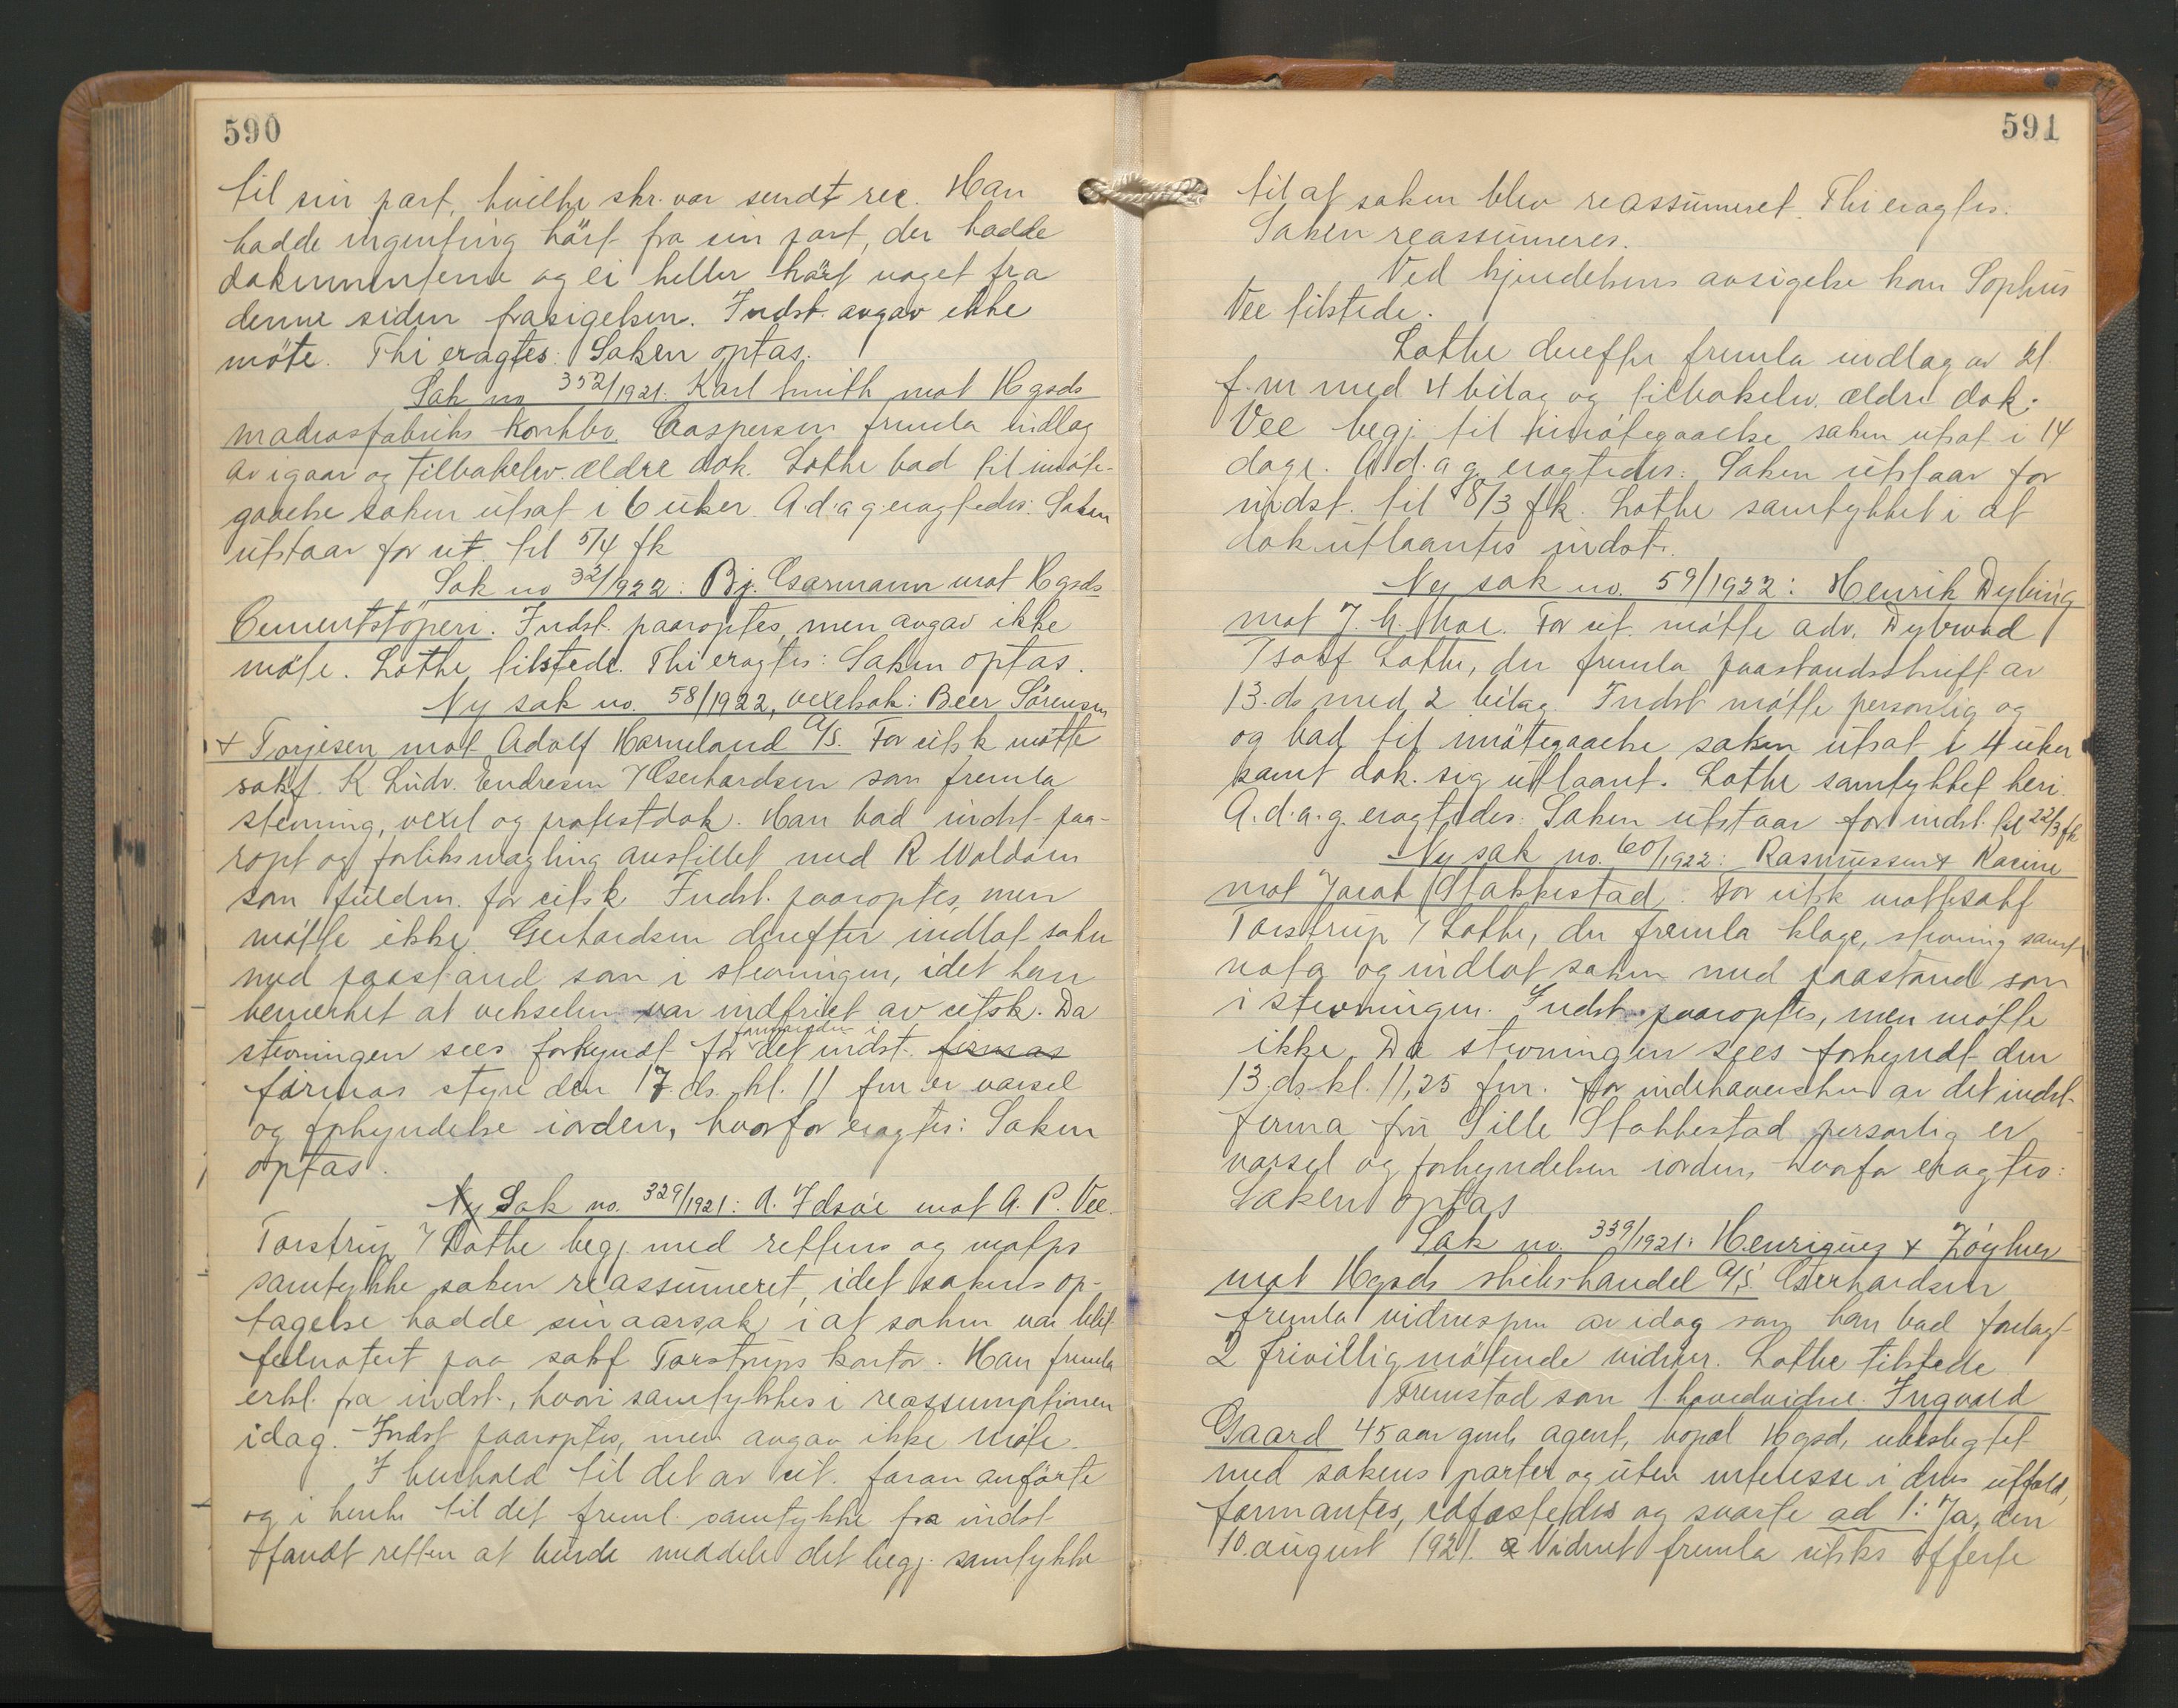 590
til sin part, hvilke skr. var sendt rec. Han
hadde ingenting hört fra sin part, der hadde
dokumenterne og ei heller hört noget fra
denne siden frasigelsen. Indst. avgav ikke
möte. Thi eragtes: Saken optas.
Sak no 352/1921. Karl Smith mot Hgsds
madrasfabriks konkbo. Caspersen fremla indlæg
av igaar og tilbakelev. ældre dok. Lothe bad til imöte-
gaaelse saken utsat i 6 uker. A.d.a.g. eragtedes: Saken
utstaar for cit. til 5/4 fk
Sak no 32/1922: Bj. Osarmann mot Hgsds
Cementstöperi. Indst. paaroptes, men avgav ikke
möte. Lothe tilstede. Thi eragtes: Saken optas.
Ny sak no. 58/1922, vexelsak: Beer Sörensen
+ Torjesen mot Adolf Harneland A/S. For citsk mötte
sakf. K. Ludv. Endresen / Gerhardsen som fremla
stevning, vexel og protestdok. Han bad indst. paa-
ropt og forliksmægling anstillet med R. Woldom
som fuldm. for citsk. Indst. paaroptes, men
mötte ikke. Gerhardsen derefter indlot saken
med paastand som i stevningen, idet han
bemerket at vekselen var indfriet av citsk. Da
stevningen sees forkyndt for formanden i det indst. firmas
firmas styre den 17. ds. kl. 11 fm er varsel
og forkyndelse iorden, hvorfor eragtes: Saken
optas.
Ny Sak no. 329/1921: A. Idsöe mot A. P. Vee.
Torstrup / Lothe begj. med rettens og motps
samtykke saken reassumeret, idet sakens op-
tagelse hadde sin aarsak i at saken var blit
feilnotert paa sakf Torstrups kontor. Han fremla
erkl. fra indst., hvori samtykkes i reassumptionen
idag. Indst paaroptes, men avgav ikke möte.
I henhold til det av cit. foran anförte
og i henh. til det freml. samtykke fra indst
fandt retten at burde meddele det begj. samtykke
591
til at saken blev reassumeret. Thi eragtes:
Saken reassumeres.
Ved kjendelsens avsigelse kom Sophus
Vee tilstede.
Lothe derefter fremla indlæg av 21.
f.m med 4 bilag og tilbakelev. ældre dok.
Vee begj. til imötegaaelse saken utsat i 14
dage. A.d.a.g. eragtedes: Saken utstaar for
indst. til 8/3 fk. Lothe samtykket i at
dok utlaantes indst.
Ny sak no. 59/1922: Henrik Dybing
mot J. H. Moe. For cit. mötte adv. Dybwad
/ sakf Lothe, der fremla paastandsskrift av
13. ds med 2 bilag. Indst mötte personlig og
og bad til imötegaaelse saken utsat i 4 uker
samt dok. sig utlaant. Lothe samtykket heri.
A.d.a.g. eragtedes: Saken utstaar for indst. til 22/3 fk
Ny sak no. 60/1922: Rasmussen & Racine
mot Jacob Stakkestad. For citsk mötte sakf
Torstrup / Lothe, der fremla klage, stevning samt
nota og indlot saken med paastand som
i stevningen. Indst. paaroptes, men mötte
ikke. Da stevningen sees forkyndt den
13. ds kl. 11,25 fm. for indehaversken av det indst.
firma fru Sille Stakkestad personlig er
varsel og forkyndelsen iorden, hvorfor eragtes:
Saken optas
Sak no. 339/1921: Henriques & Zöylner
mot Hgsds skibshandel A/S. Gerhardsen
fremla vidnespm av idag som han bad forelagt
2 frivillig mötende vidner. Lothe tilstede.
Fremstod som 1. hovedvidne. Ingvald
Gaard 45 aar gml. agent, bopæl Hgsd, ubeslegtet
med sakens parter og uten interesse i dens utfald,
formantes, edfæstedes og svarte ad 1: Ja, den
10. august 1921. Vidnet fremla citsks offerte